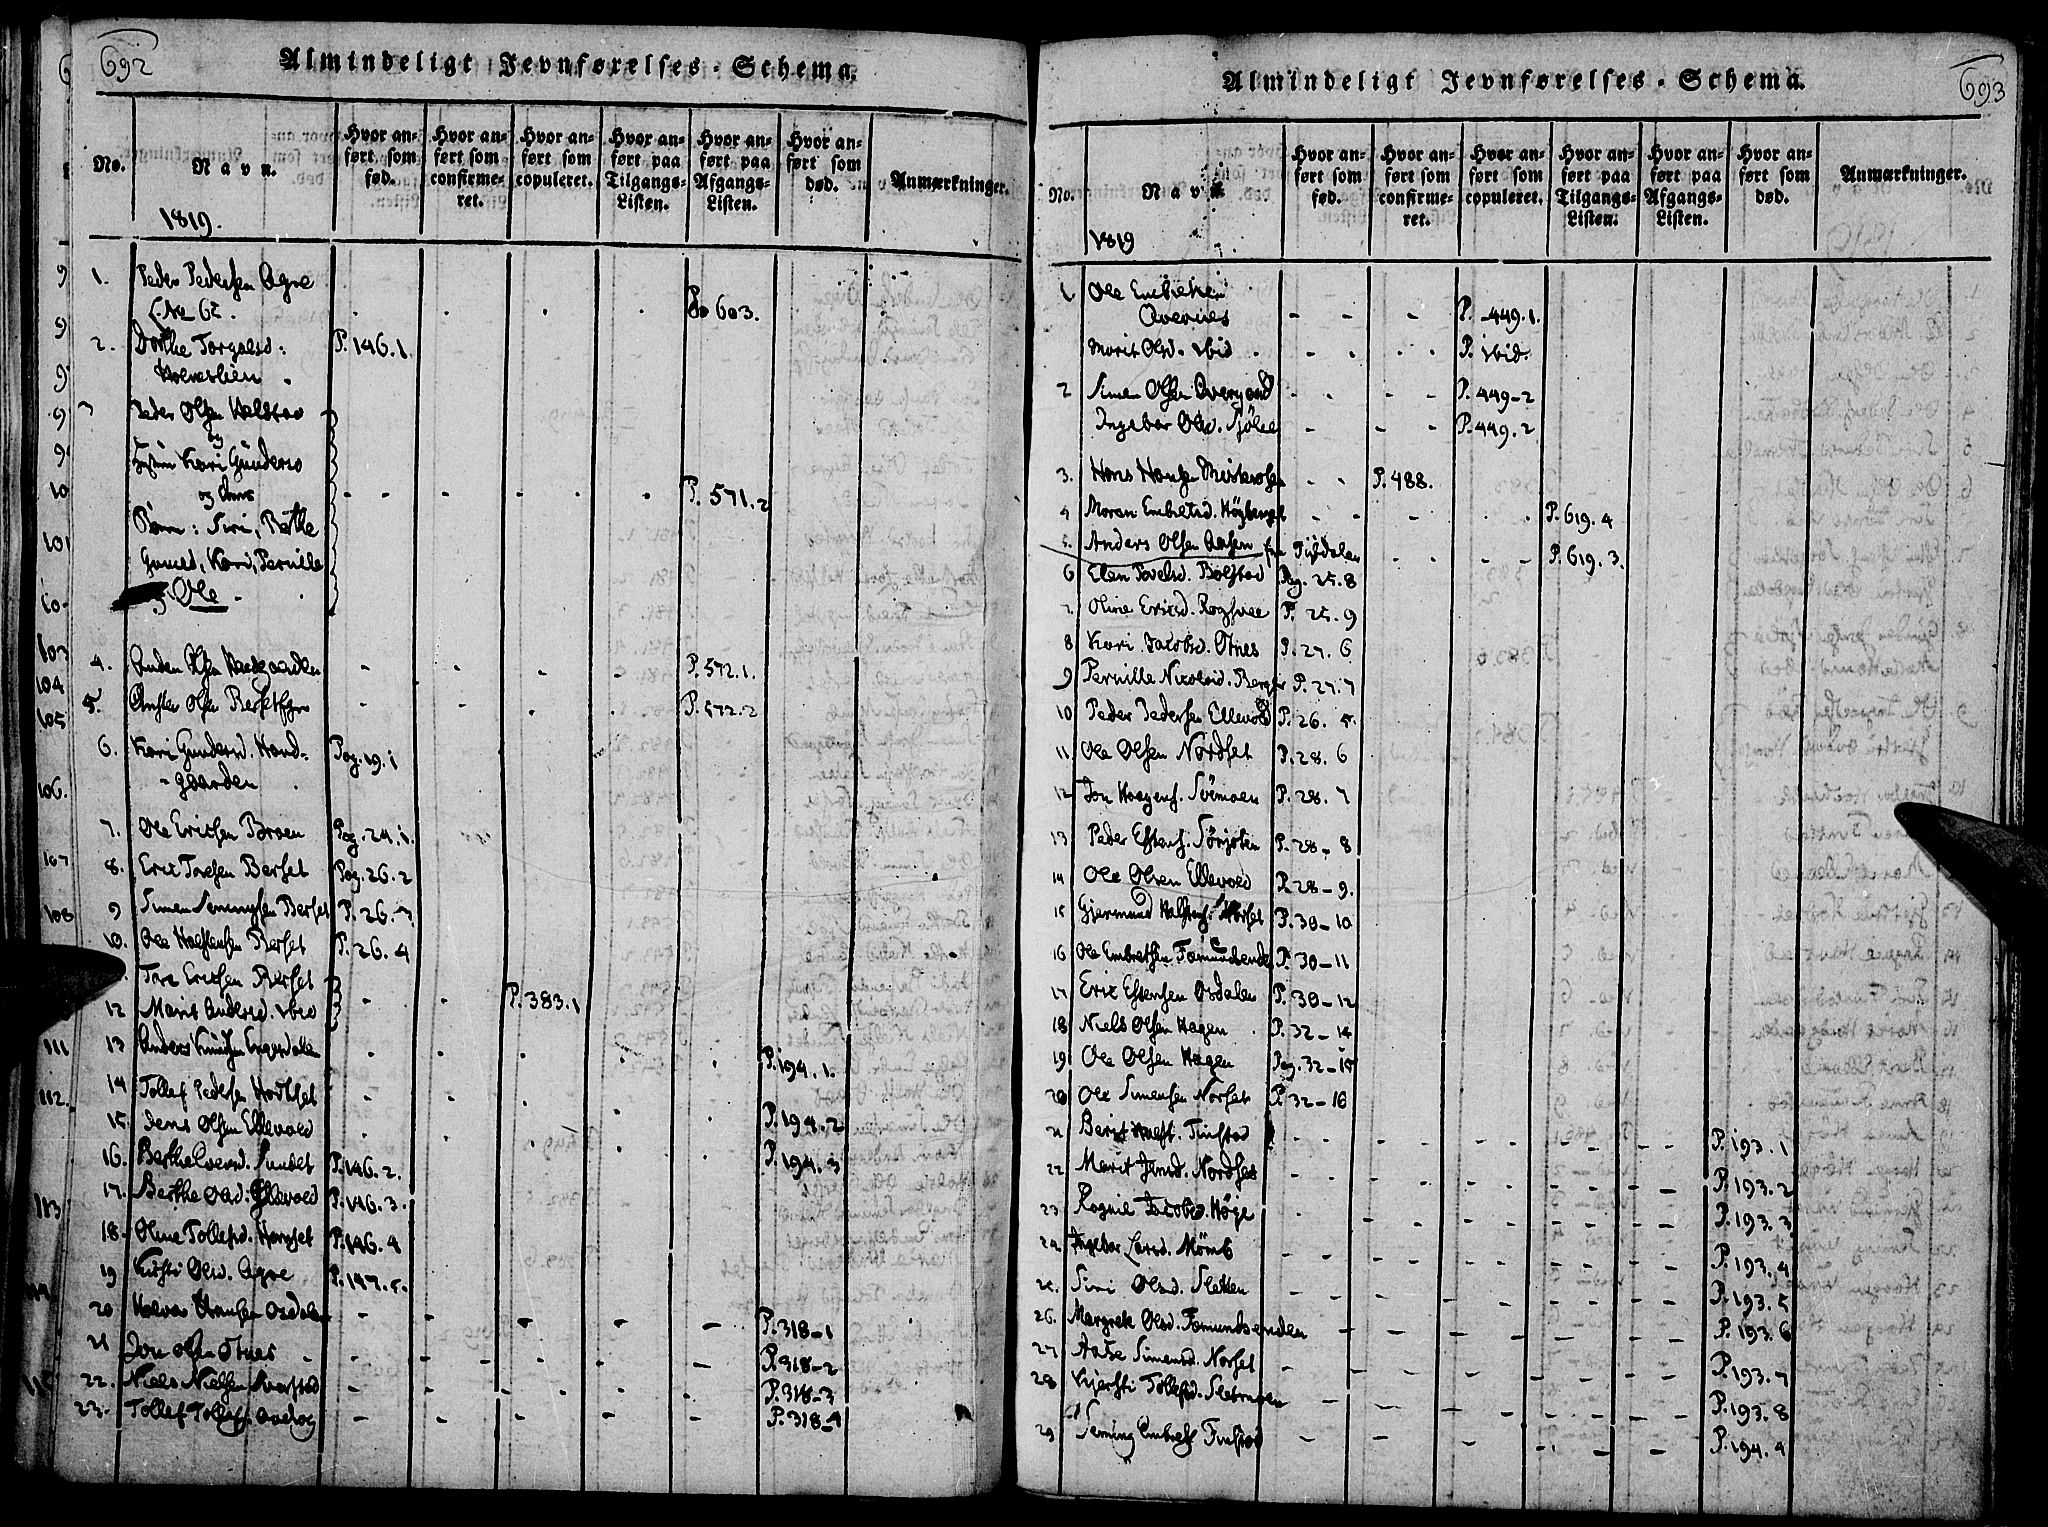 692
Almindeligt Jevnførelses-Schema.
No.
Navn.
Hvor anført som fød.
Hvor anført som confirmeret.
Hvor anført som copuleret.
Hvor anført paa Tilgangs-Listen.
Hvor anført paa Afgangs-Listen.
Hvor anført som død.
Anmærkninger.
1819.
1. Peder Pedersen Agre
No 62. P. 603.
2. Dorthe Torgalsd: P. 146.1
Holmslien
3 Peder Olsen Halstad
og
Kari Gunders
og
Børn: Siri, Berthe P. 571.2
Gunild, Kari, Pernille
og Ole
4. Amden Olsen P. 572.1.
5. Olsen P. 572.2
6. Kari Gundersd. Hand- Pag. 19.1
gaarden
7. Ole Ericsen Broen Pag. 24.1.
8. Eric Toresen Berset Pag. 26.2
9 Simen Semingsen Berset P. 26.3
10. Ole Halstensen Berset P. 26.4
Tore Ericsen Berset
12 Marit Andersd. ibid P. 383.1
13 Anders Knudsen Engerdalen P. 194.1.
14 Tollef Pedersen P. 194.2
15. Jens Olsen Ellevold P. 194.3
16. Berthe Iversd. Sundet P. 146.2.
17. Berthe Olsd: Ellevold P. 146.3.
18. Oline Tollefsd. P. 146.4
19 Kirsti Olsd. Agre P. 147.5.
20 Halvor Hansen Osdalen P. 318-1
21 Jon Olsen Otnes P. 318-2
22. Niels Nielsen P. 318-3
23. Tollef Tollefs. P. 318-4
693
Almindeligt Jevnførelses-Schema.
No.
Navn
Hvor anført som fød.
Hvor anført som confirmeret.
Hvor anført som copuleret.
Hvor anført paa Tilgangs-Listen.
Hvor anført paa Afgangs-Listen.
Hvor anført som død.
Anmærkninger.
1819
1. Ole Embretsen
Qvernes P. 449.1.
Marit Olsd. ibid P. ibid.
2 Simen Olsen Øvergaard P. 449-2
Ingebor Olsd. Sjølie P. 449.2
3. Hans Hansen P. 488.
4 Maren Embretsd. Høyberget P. 619.4
5. Anders Olsen Aasen fra Tyldalen P. 619.3.
6 Elen Povelsd. Bolstad Pag. 25.8
7. Oline Ericsd. P. 25.9
8 Kari Jacobsd. Otnes P. 27.6
9 Pernille Nicolsd. Berger P. 27.7
10 Peder Pedersen Ellevold P. 26.5.
11 Ole Olsen Nordset P. 28.6
12 Jon Haagens. Sømoen P. 28.7
13 Peder Estens. P. 28-8
14 Ole Olsen Ellevold P. 28-9.
15 Gjermund Halstens. Norset P. 30-10
16 Ole Embretsen Fæmundsenden P. 30-11
17 Eric Estensen Osdalen P. 30-12
18 Niels Olsen Hagen P. 32-14
19 Ole Olsen Hagen Pag. 32-15
20 Ole Simensen Norset P. 32-16
21 Berit Halst. Finstad P. 193.1
22. Marit Jensd. Nordset P. 193.2
23 Rognil Jacobsd. Høge P. 193.3
24 Ingebor Larsd. Mømb P. 193.4
25. Siri Olsd. Sletten P. 193.5
26. Margrete Olsd. Fæmundsenden P. 193.6
27 Aase Simensd. Norset P. 193.7
28 Kjersti Tollefsd. Sletmoen P. 193.8
29 Seming Embrets Finstad P. 194.4